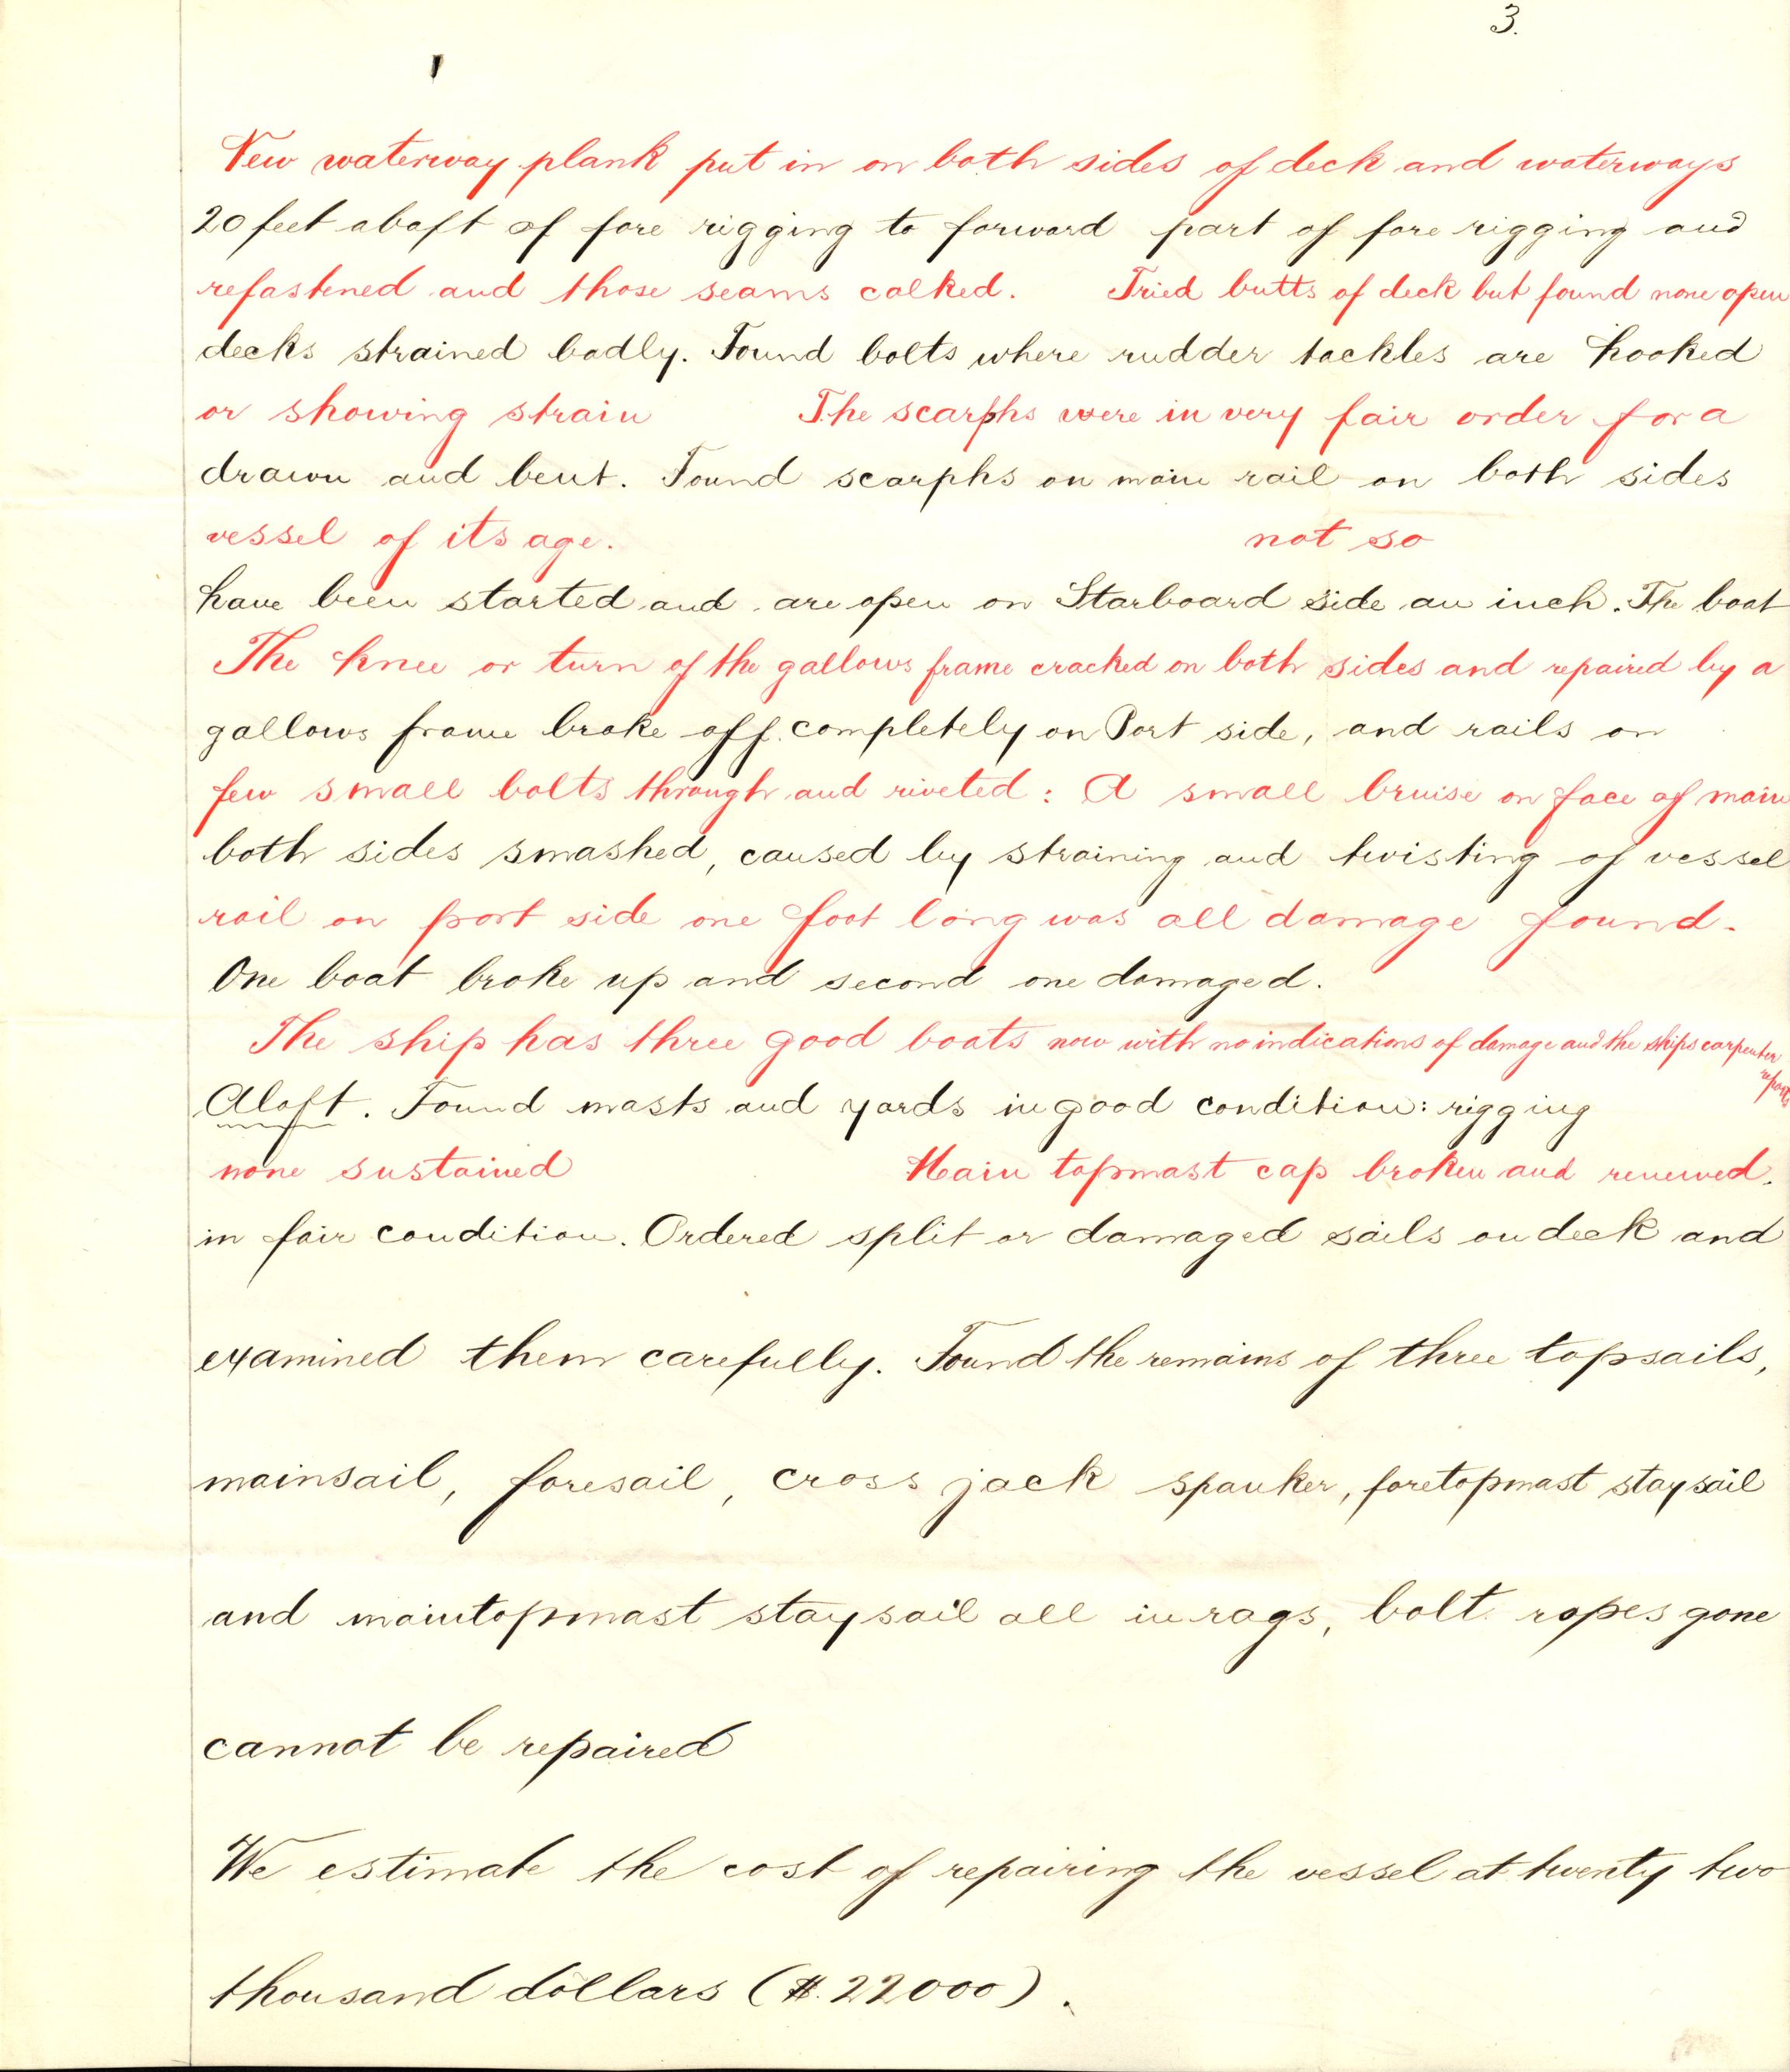 3.
New waterway plank put in on both sides of deck and waterways
20 feet abaft of fore rigging to forward part of fore rigging and
refastened and those seams calked. Tried butts of deck but found none open
decks strained badly. Found bolts where rudder tackles are hooked
or showing strain The scarphs were in very fair order for a
drawn and bent. Found scarphs on main rail on both sides
vessel of its age. not so
have been started and are open on Starboard side an inch. The boat
The knee or turn of the gallows frame cracked on both sides and repaired by a
gallows frame broke off completely on Port side, and rails on
few small bolts through and riveted: A small bruise on face of main
both sides smashed, caused by straining and twisting of vessel
rail on port side one foot long was all damage found.
One boat broke up and second one damaged.
The ship has three good boats now with no indications of damage and the ships carpenter
reports
Aloft. Found masts and yards in good condition: rigging
none sustained Main topmast cap broken and renewed.
in fair condition. Ordered split or damaged sails on deck and
examined them carefully. Found the remains of three topsails,
mainsail, foresail, cross jack spanker, foretopmast staysail
and maintopmast staysail all in rags, bolt ropes gone
cannot be repaired
We estimate the cost of repairing the vessel at twenty two
thousand dollars ($.22000).